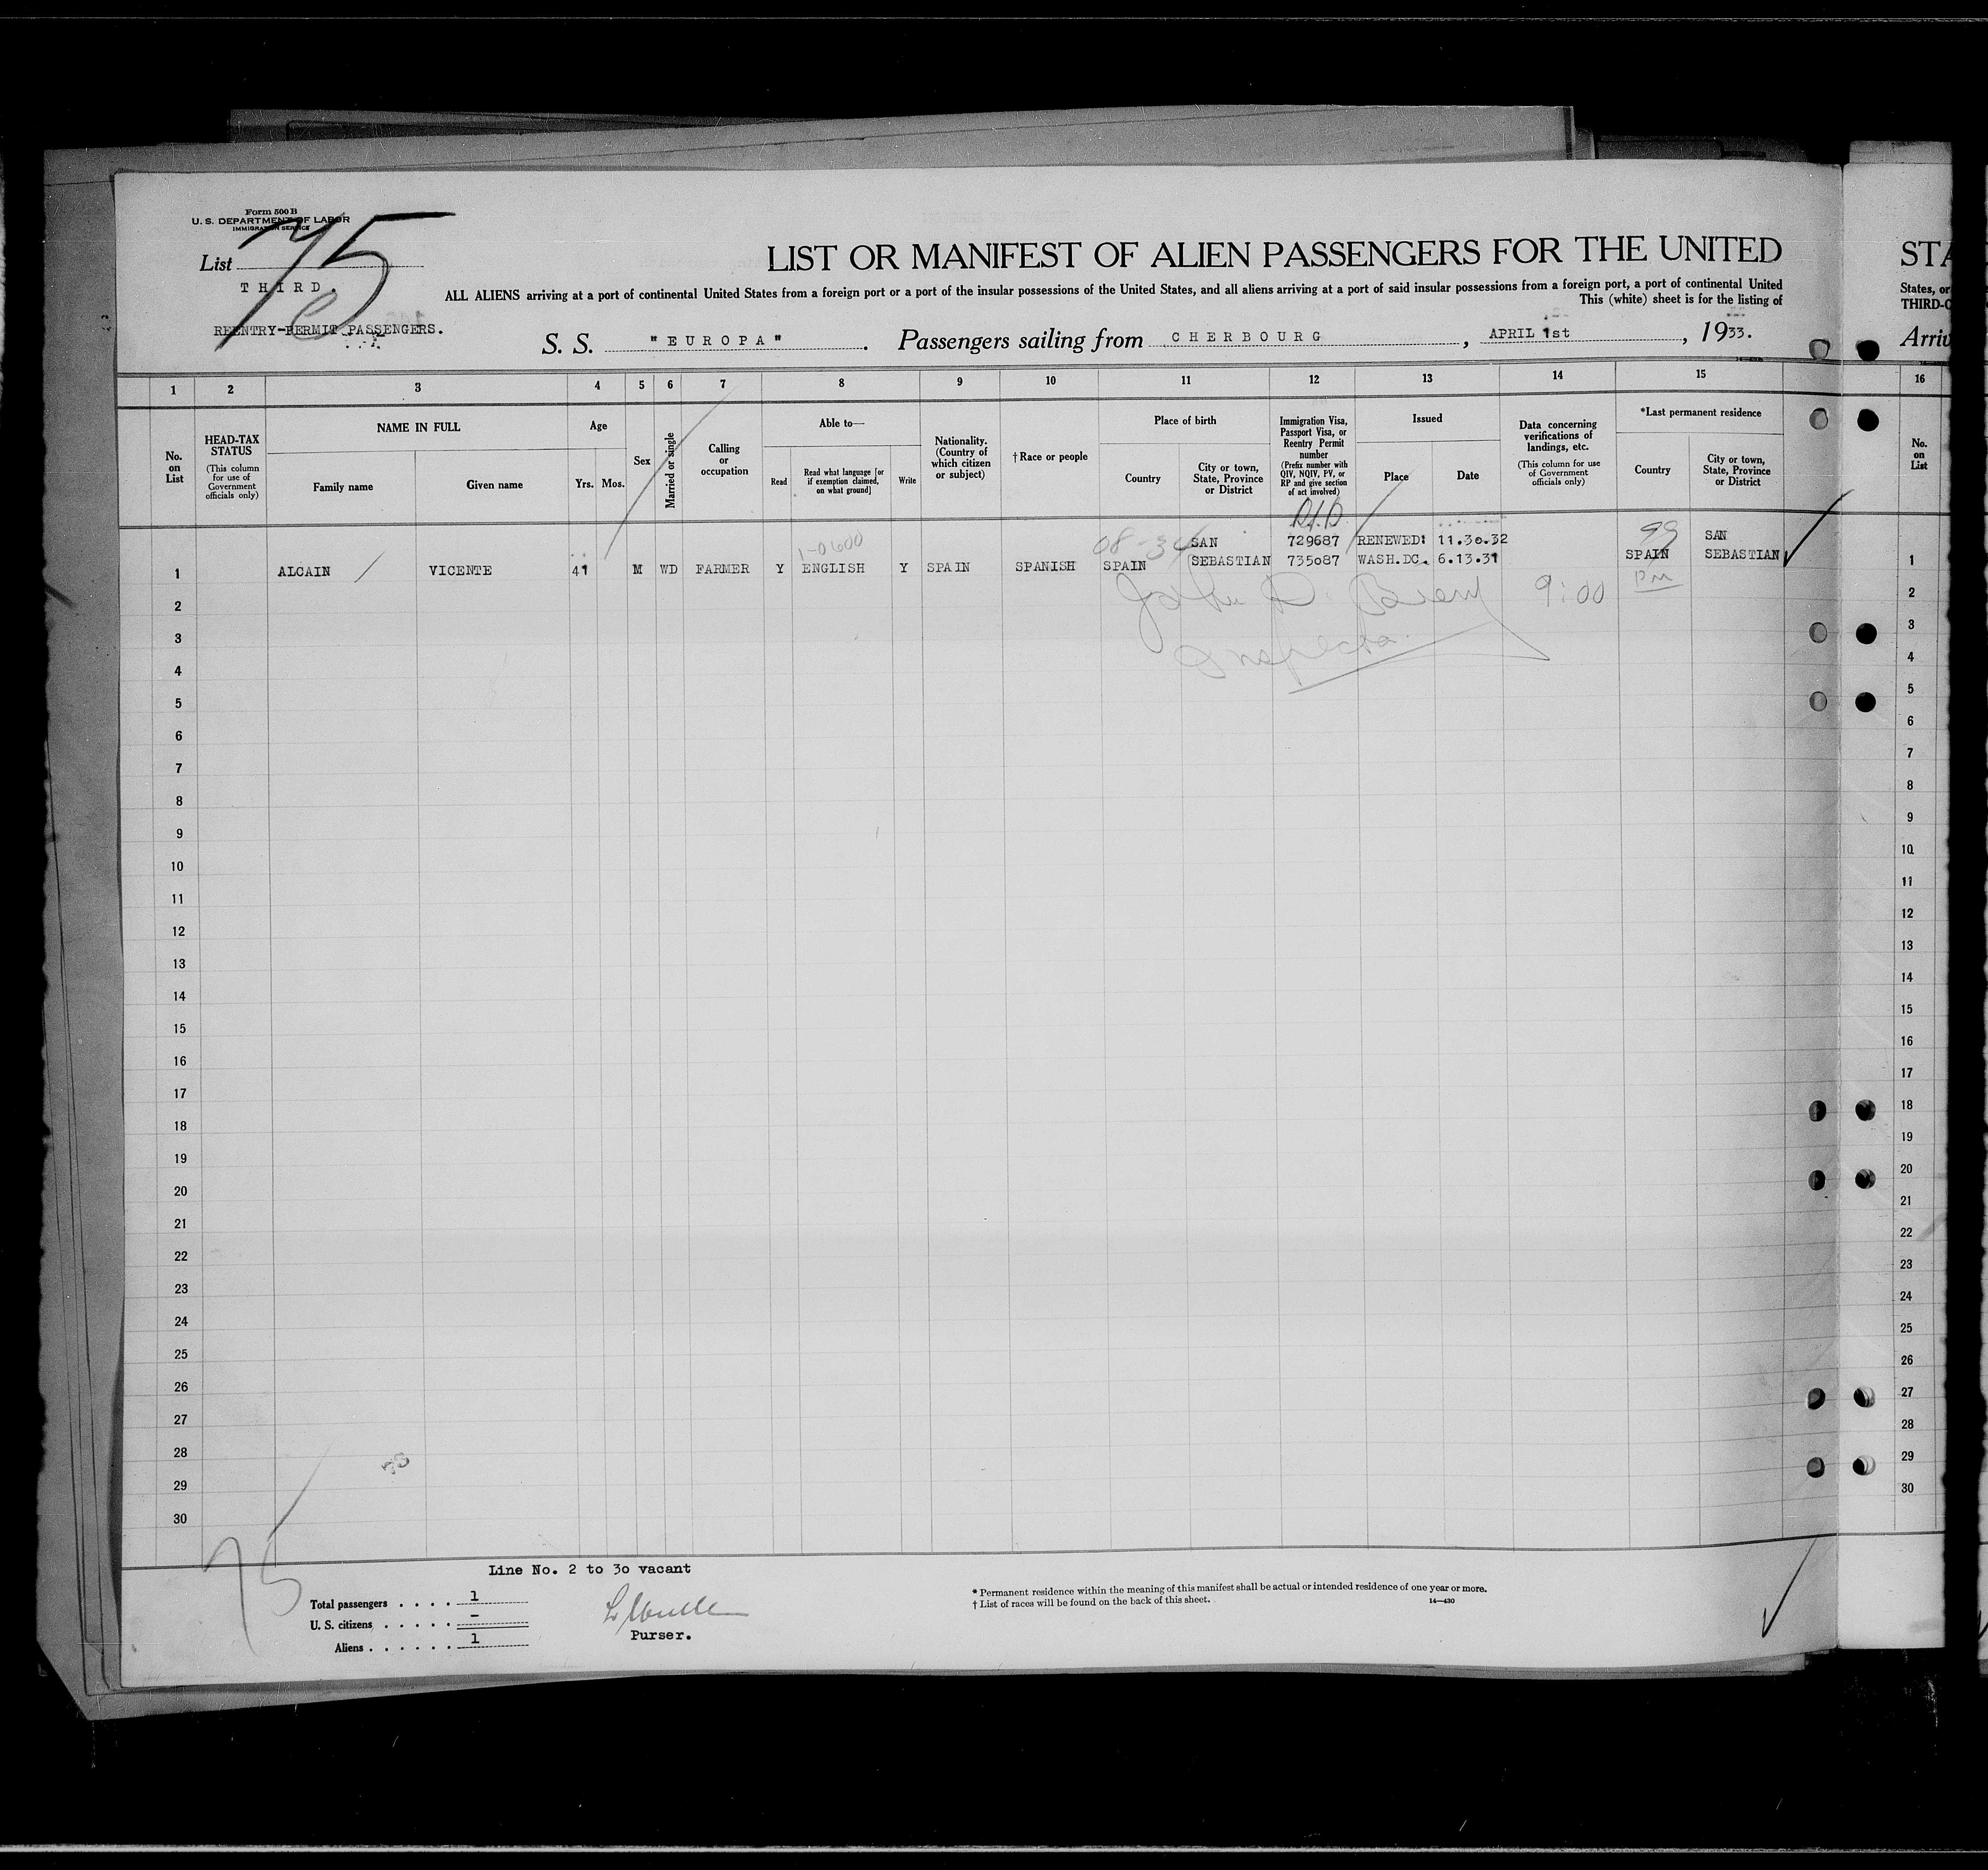 Form 500 B
U. S. DEPARTMENT OF LABOR
IMMIGRATION SERVICE
List 75
THIRD.
REENTRY-PERMIT PASSENGERS.
LIST OR MANIFEST OF ALIEN PASSENGERS FOR THE UNITED
ALL ALIENS arriving at a port of continental United States from a foreign port or a port of the insular possessions of the United States, and all aliens arriving at a port of said insular possessions from a foreign port, a port of continental United
This (white) sheet is for the listing of
S. S. "EUROPA". Passengers sailing from CHERBOURG, APRIL 1st, 1933.
STA
States, or
THIRD-C
Arriv
1 2 3 4 5 6 7 8 9 10 11 12 13 14 15 16
No. on List
HEAD-TAX STATUS
(This column for use of Government officials only)
NAME IN FULL
Family name
Given name
Age
Yrs. Mos.
Sex
Married or single
Calling or occupation
Able to—
Read
Read what language [or if exemption claimed, on what ground]
Write
Nationality. (Country of which citizen or subject)
† Race or people
Place of birth
Country
City or town, State, Province or District
Immigration Visa, Passport Visa, or Reentry Permit number
(Prefix number with QIV, NQIV, PV, or RP and give section of act involved)
Issued
Place
Date
Data concerning verifications of landings, etc.
(This column for use of Government officials only)
*Last permanent residence
Country
City or town, State, Province or District
No. on List
1-0600
08-34
99
SAN 729687 RENEWED: 11.30.32 SAN
1 ALCAIN / VICENTE 41 M WD FARMER Y ENGLISH Y SPAIN SPANISH SPAIN SEBASTIAN 735087 WASH.DC. 6.13.31 SPAIN SEBASTIAN 1
9:00 PM
Inspector
2 2
3 3
4 4
5 5
6 6
7 7
8 8
9 9
10 10
11 11
12 12
13 13
14 14
15 15
16 16
17 17
18 18
19 19
20 20
21 21
22 22
23 23
24 24
25 25
26 26
27 27
28 28
29 29
30 30
75
Line No. 2 to 30 vacant
Total passengers . . . . 1
U. S. citizens . . . . . –
Aliens . . . . . . 1
Purser.
* Permanent residence within the meaning of this manifest shall be actual or intended residence of one year or more.
† List of races will be found on the back of this sheet.
14—430